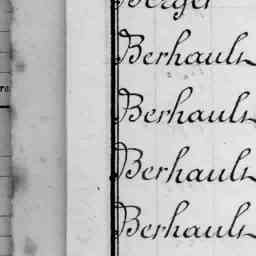 Berger
Berhault
Berhault
Berhault
Berhault